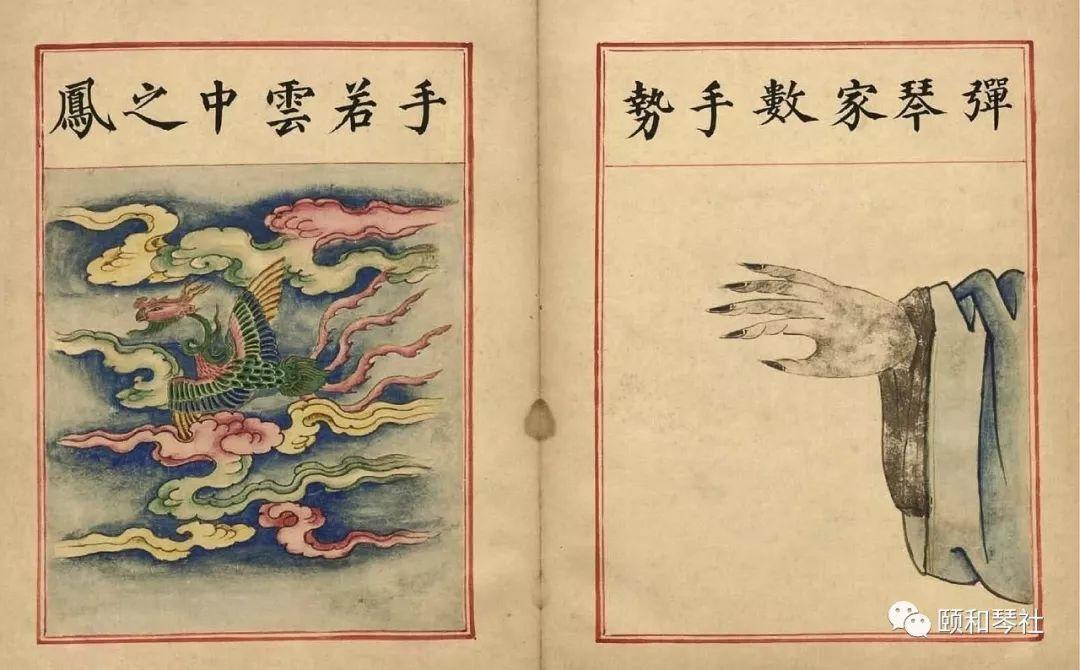 彈琴家數手勢
手若雲中之鳳
颐和琴社